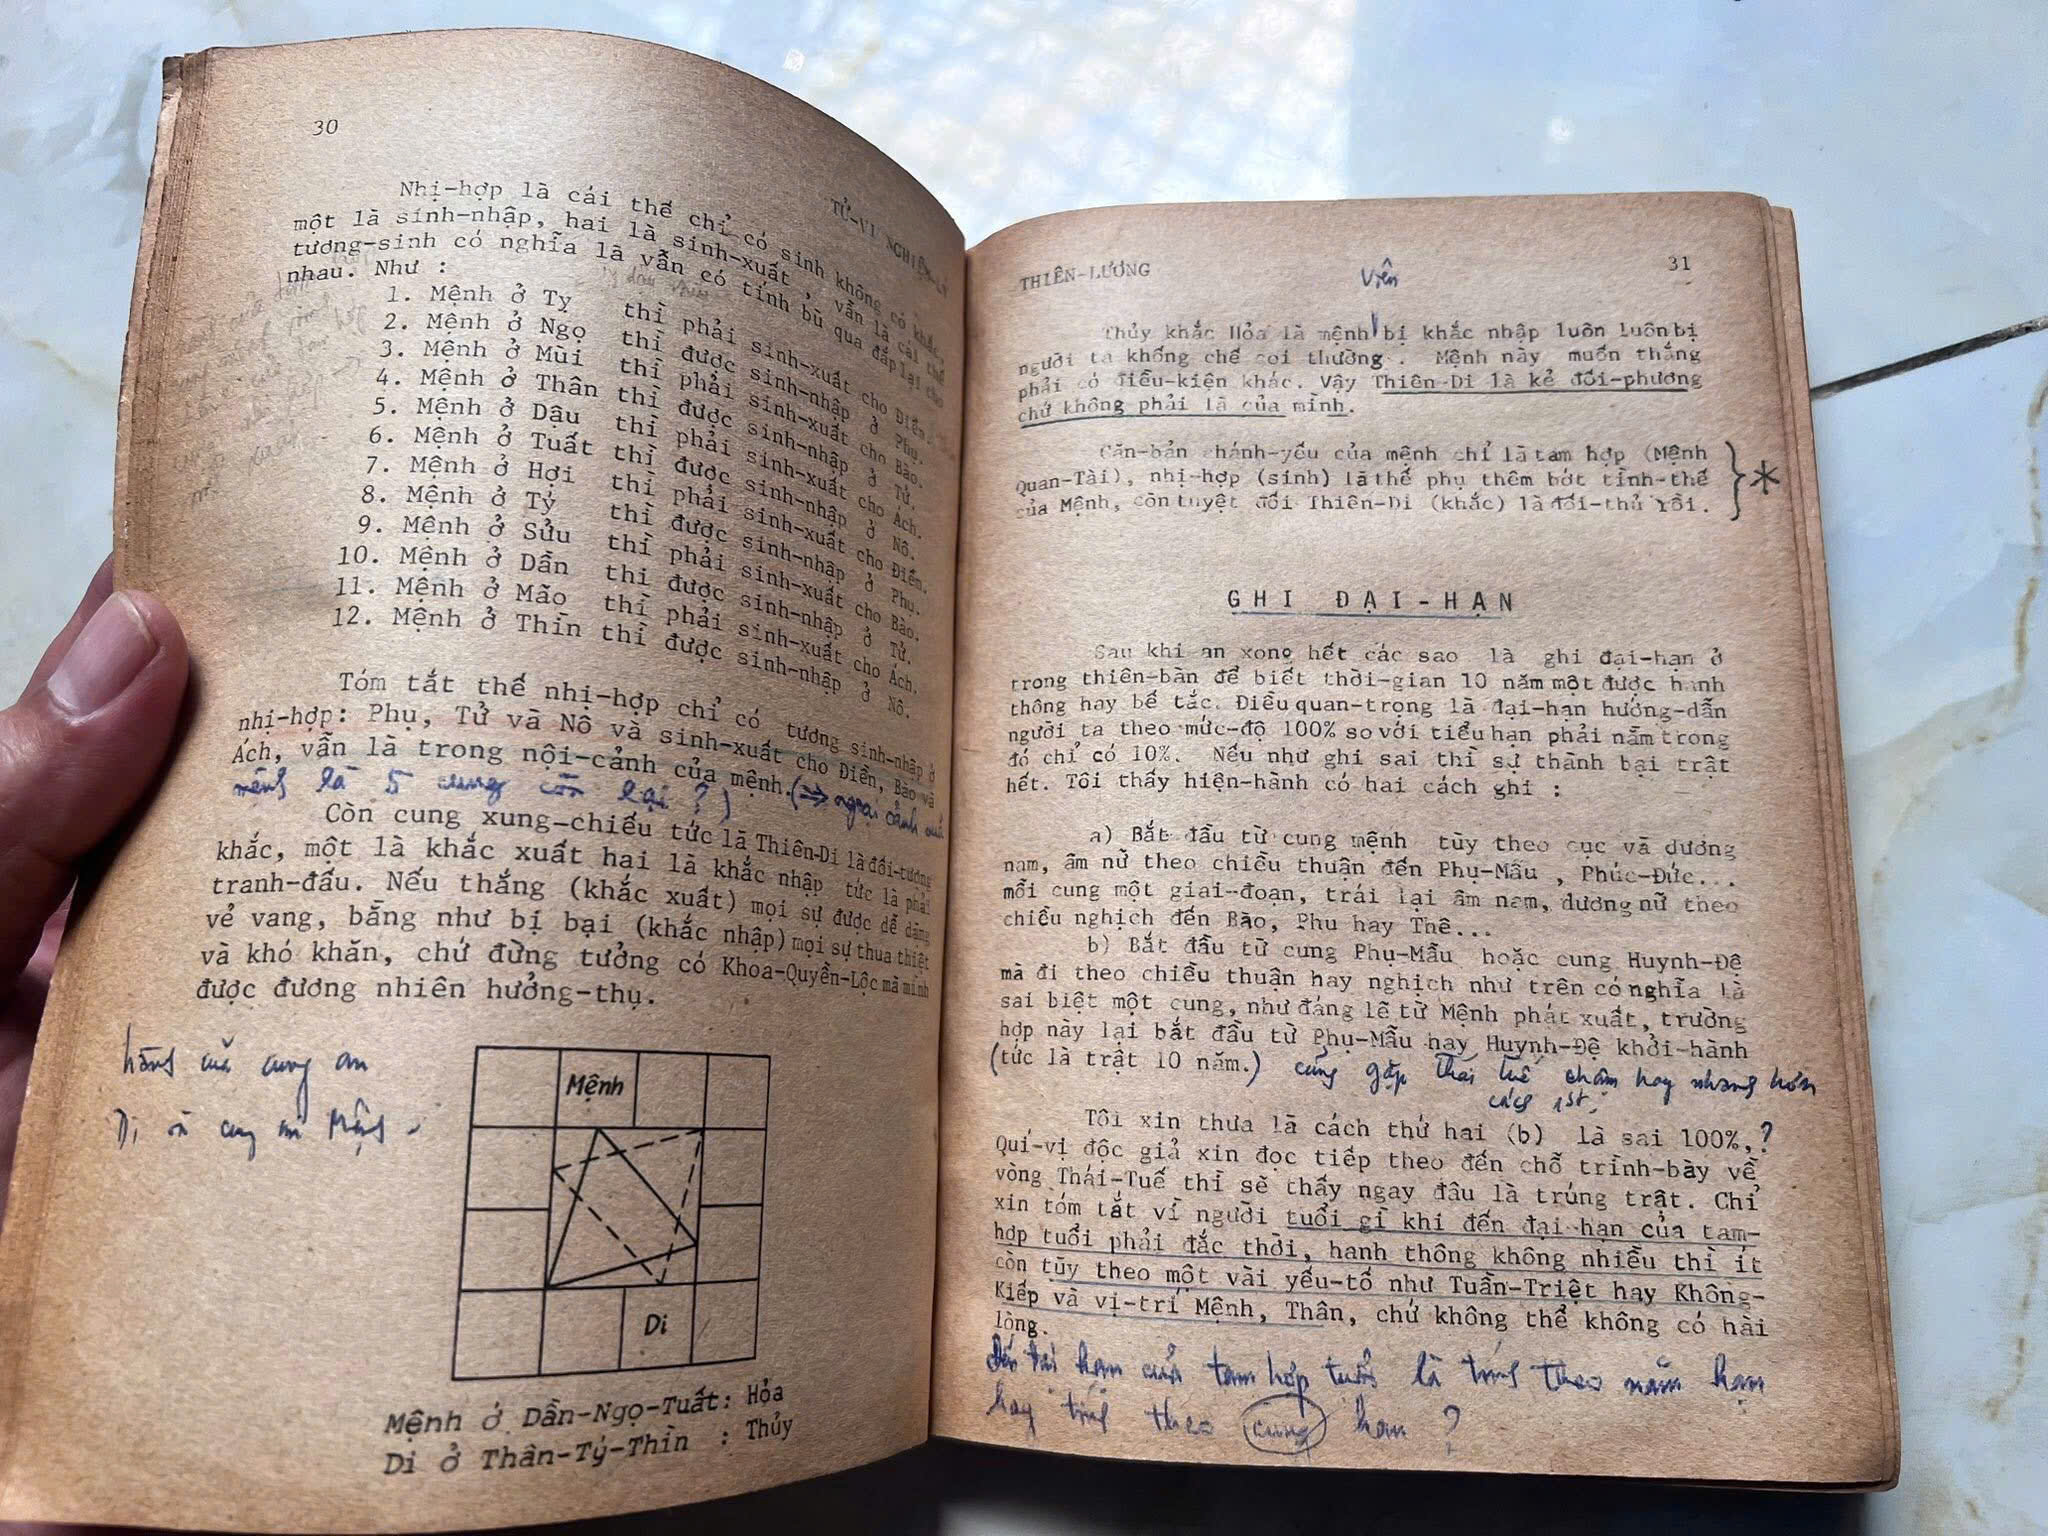 30
TỬ-VI NGHIỆM-LÝ
Nhị-hợp là cái thế chỉ có sinh không có khắc,
một là sinh-nhập, hai là sinh-xuất, vẫn là cái thế
tương-sinh có nghĩa là vẫn có tính bù qua đắp lại cho
nhau. Như :
1. Mệnh ở Tỵ thì phải sinh-xuất cho Điền.
2. Mệnh ở Ngọ thì được sinh-nhập ở Phụ.
3. Mệnh ở Mùi thì phải sinh-xuất cho Bào.
4. Mệnh ở Thân thì được sinh-nhập ở Tử.
5. Mệnh ở Dậu thì phải sinh-xuất cho Ách.
6. Mệnh ở Tuất thì được sinh-nhập ở Nô.
7. Mệnh ở Hợi thì phải sinh-xuất cho Điền.
8. Mệnh ở Tý thì được sinh-nhập ở Phụ.
9. Mệnh ở Sửu thì phải sinh-xuất cho Bào.
10. Mệnh ở Dần thì được sinh-nhập ở Tử.
11. Mệnh ở Mão thì phải sinh-xuất cho Ách.
12. Mệnh ở Thìn thì được sinh-nhập ở Nô.
Tóm tắt thế nhị-hợp chỉ có tương sinh-nhập ở
nhị-hợp: Phụ, Tử và Nô và sinh-xuất cho Điền, Bào và
Ách, vẫn là trong nội-cảnh của mệnh. (=> ngoại cảnh của
mệnh là 5 cung còn lại ? )
Còn cung xung-chiếu tức là Thiên-Di là đối-tượng
khắc, một là khắc xuất hai là khắc nhập tức là phải
tranh-đấu. Nếu thắng (khắc xuất) mọi sự được dễ dàng
vẻ vang, bằng như bị bại (khắc nhập) mọi sự thua thiệt
và khó khăn, chứ đừng tưởng có Khoa-Quyền-Lộc mà mình
được đương nhiên hưởng-thụ.
hành của cung an
Di và cung an Mệnh
Mệnh
Di
Mệnh ở Dần-Ngọ-Tuất: Hỏa
Di ở Thân-Tý-Thìn : Thủy
THIÊN-LƯƠNG
Viên
31
Thủy khắc Hỏa là mệnh bị khắc nhập luôn luôn bị
người ta khống chế coi thường. Mệnh này muốn thắng
phải có điều-kiện khác. Vậy Thiên-Di là kẻ đối-phương
chứ không phải là của mình.
Căn-bản chánh-yếu của mệnh chỉ là tam hợp (Mệnh
Quan-Tài), nhị-hợp (sinh) là thế phụ thêm bớt tình-thế
của Mệnh, còn tuyệt đối Thiên-Di (khắc) là đối-thủ rồi.
GHI ĐẠI-HẠN
Sau khi an xong hết các sao là ghi đại-hạn ở
trong thiên-bàn để biết thời-gian 10 năm một được hanh
thông hay bế tắc. Điều quan-trọng là đại-hạn hướng-dẫn
người ta theo mức-độ 100% so với tiểu hạn phải nằm trong
đó chỉ có 10%. Nếu như ghi sai thì sự thành bại trật
hết. Tôi thấy hiện-hành có hai cách ghi :
a) Bắt đầu từ cung mệnh tùy theo cục và dương
nam, âm nử theo chiều thuận đến Phụ-Mẫu , Phúc-Đức...
mỗi cung một giai-đoạn, trái lại âm nam, dương nữ theo
chiều nghịch đến Bào, Phu hay Thê...
b) Bắt đầu từ cung Phụ-Mẫu hoặc cung Huynh-Đệ
mà đi theo chiều thuận hay nghịch như trên có nghĩa là
sai biệt một cung, như đáng lẽ từ Mệnh phát xuất, trường
hợp này lại bắt đầu từ Phụ-Mẫu hay Huynh-Đệ khởi-hành
(tức là trật 10 năm.) cũng gặp Thái Tuế chậm hay nhanh hơn
cách 1st.
Tôi xin thưa là cách thứ hai (b) là sai 100%, ?
Quí-vị độc giả xin đọc tiếp theo đến chỗ trình-bày về
vòng Thái-Tuế thì sẽ thấy ngay đâu là trúng trật. Chỉ
xin tóm tắt vì người tuổi gì khi đến đại-hạn của tam-
hợp tuổi phải đắc thời, hanh thông không nhiều thì ít
còn tùy theo một vài yếu-tố như Tuần-Triệt hay Không-
Kiếp và vị-trí Mệnh, Thân, chứ không thể không có hài
lòng.
Đến đại hạn của tam hợp tuổi là tính theo năm hạn
hay tính theo cung hạn ?